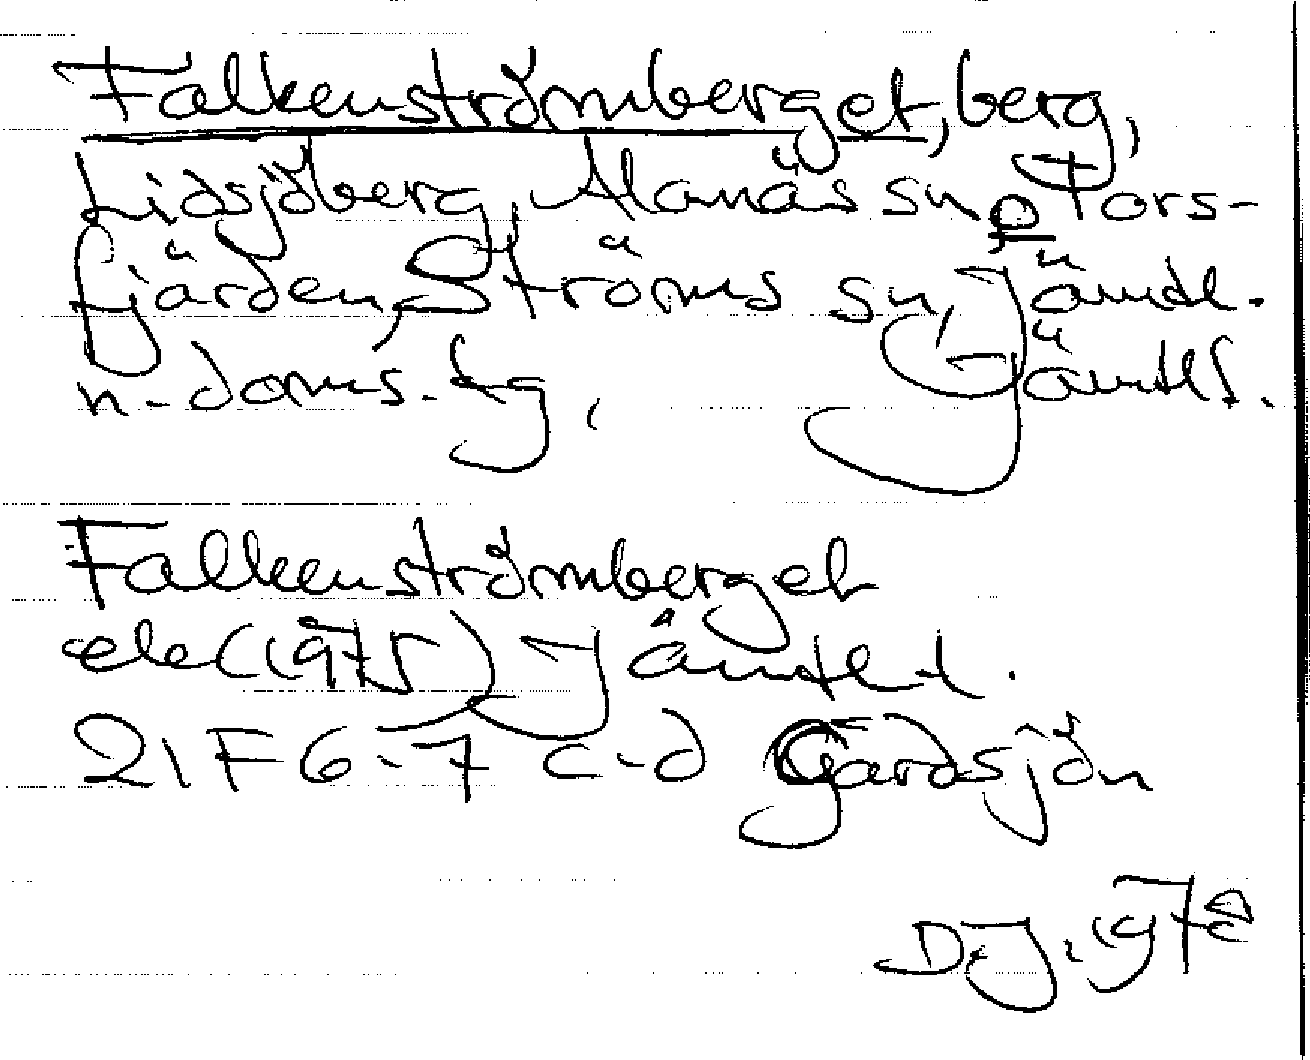 Falkenströmberget, berg,
Lidsjöberg, Alanäs sn o Tors-
fjärden, Ströms sn, Jämtl.
n. doms.sg, Jämtl.
Falkenströmberget
ek (1975) Jämtl l.
21 F 6-7 c-d Gårdsjön
D.J. 197